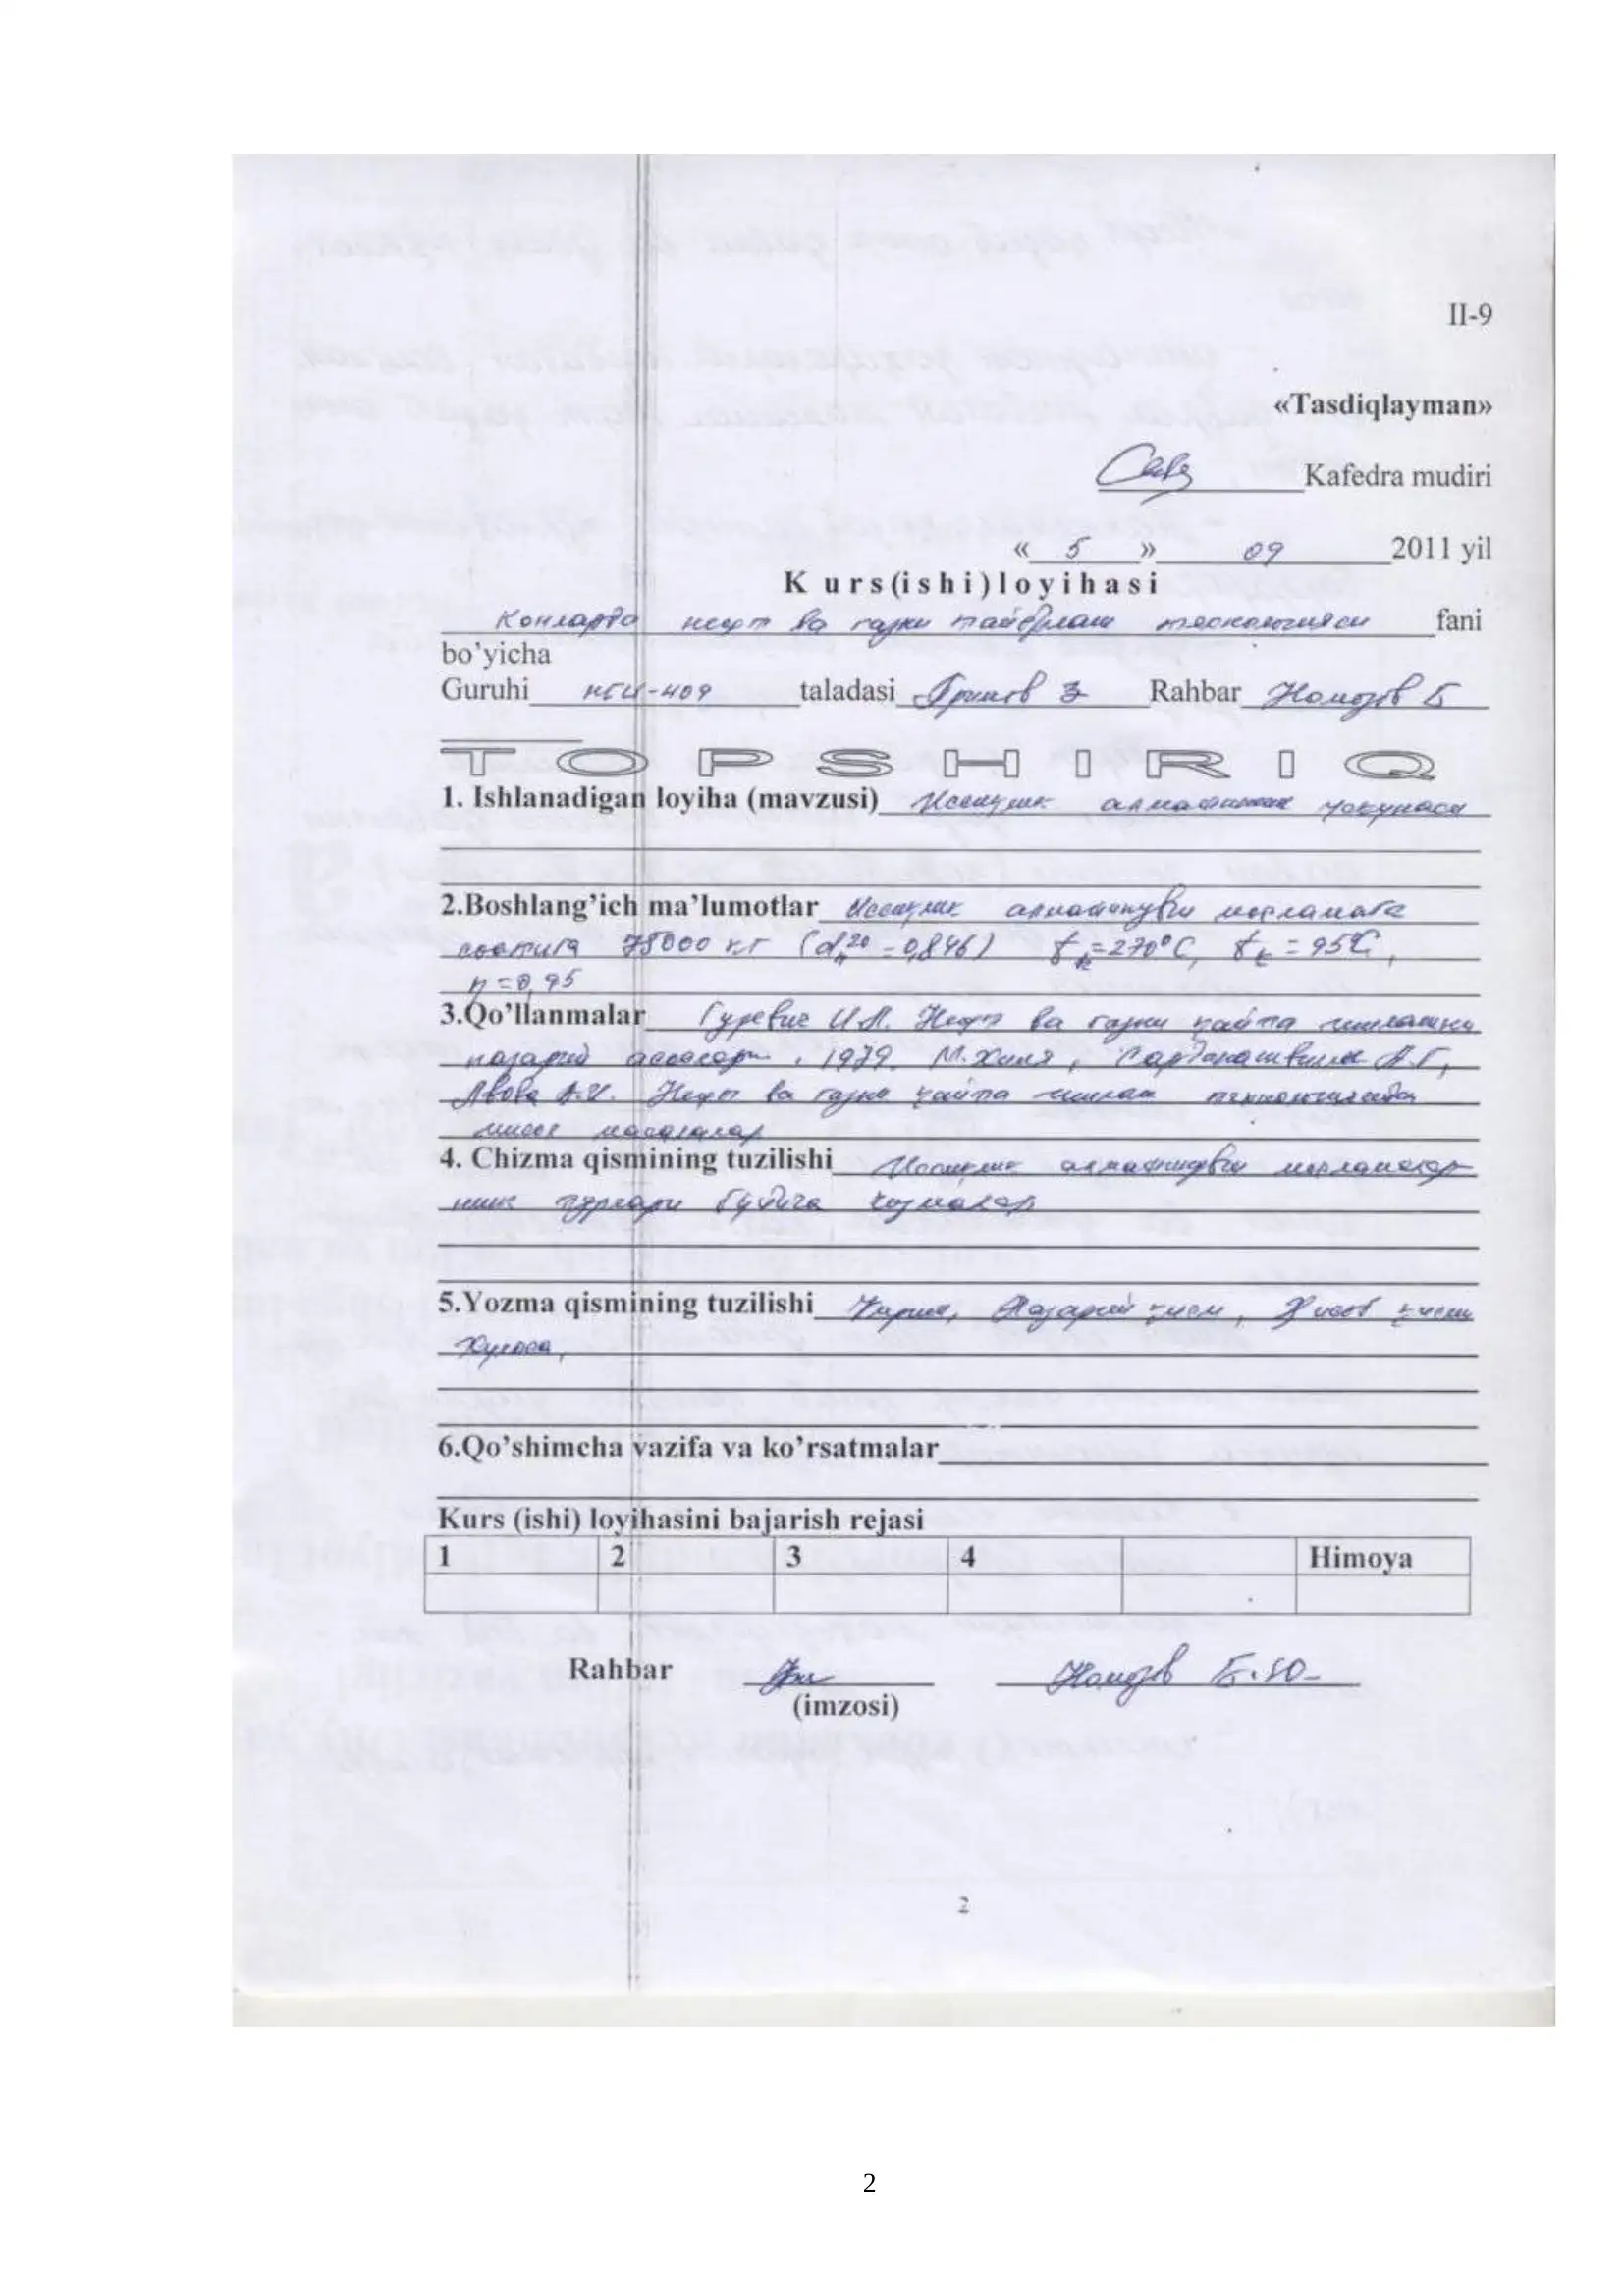 II-9
«Tasdiqlayman»
Kafedra mudiri
« 5 » 09 2011 yil
K u r s (i s h i ) l o y i h a s i
Конларда нефт ва газни тайёрлаш технологияси fani
bo’yicha
Guruhi НГИ-409 taladasi Rahbar Номозов Б
T O P S H I R I Q
1. Ishlanadigan loyiha (mavzusi) Иссиқлик алмашиниш
2.Boshlang’ich ma’lumotlar Иссиқлик алмашинувчи
соатига 78000 кг ( =0,846) =270°C, =95°C,
η =0,95
3.Qo’llanmalar Гуревич И.Л. Нефт ва газни қайта ишлашни
назарий асослари. 1979. М. Химя, Сарданашвили А.Г,
Львова А.И. Нефт ва газни қайта ишлаш технологиясидан
мисол масалалар
4. Chizma qismining tuzilishi Иссиқлик алмашинувчи
нинг турлари бўйича чизмалар
5.Yozma qismining tuzilishi Кириш, Назарий қисм, Ҳисоб қисми
Хулоса,
6.Qo’shimcha vazifa va ko’rsatmalar
Kurs (ishi) loyihasini bajarish rejasi
1 2 3 4 Himoya
Rahbar Номозов Б.Ю.
(imzosi)
2
2